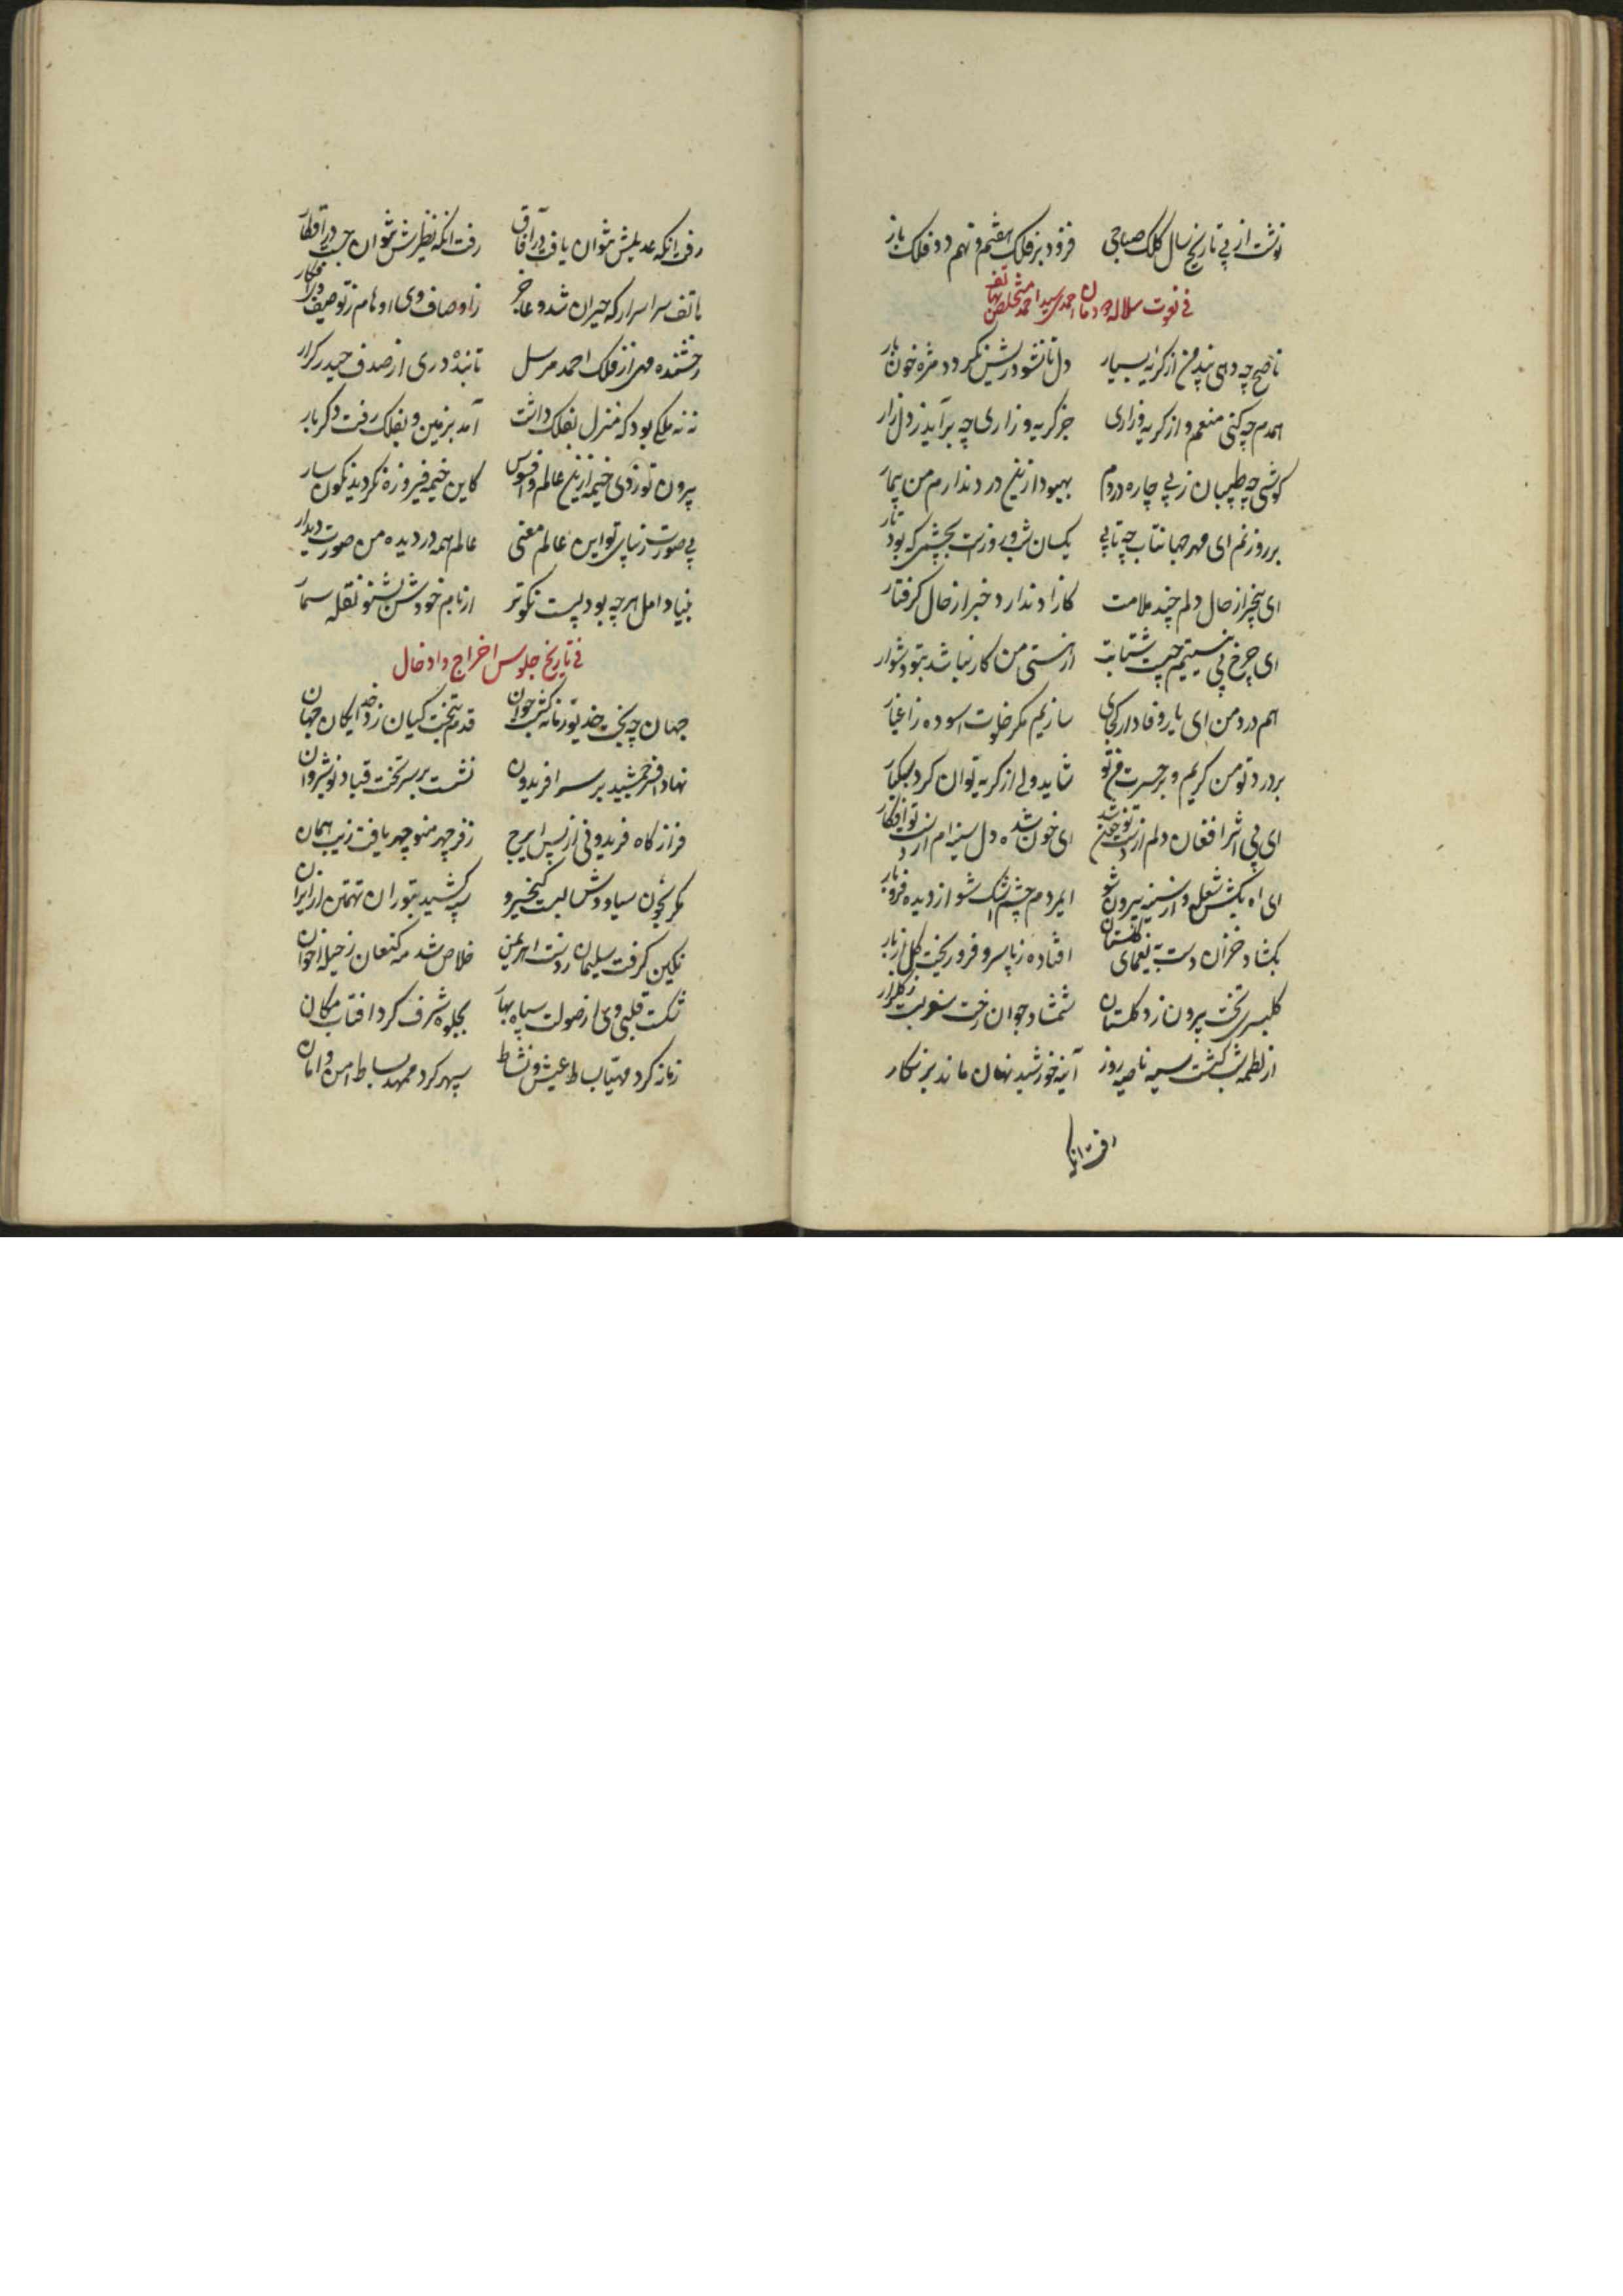 نوشت از پی تاریخ سال کلک صباحی فزود بر فلک هفتم و نهم دو فلک باز
فی فوت سلاله دودمان احمدی سید احمد متخلص بهاتف
ناصح چه دهی پند من از گریه بسیار دل تا نشود ریش نگردد مژه خون بار
همدم چه کنی منعم و از گریه و زاری جز گریه و زاری چه برآید ز دل زار
کوشی چه طبیبان ز پی چاره دردم بهبود ازین درد ندارم من بیمار
بر روزنم ای مهر جهانتاب چه تابی یکسان شب و روزست بچشمی که بود تار
ای بیخبر از حال دلم چند ملامت کازاد ندارد خبر از حال گرفتار
ای چرخ پی نیستیم چیست شتابت از هستی من کار نباشد بتو دشوار
هم درد من ای یار وفادار کجای سازیم مگر خلوت آسوده ز اغیار
بر درد تو من گریم و بر حسرت من تو شاید ولی از گریه توان کرد سبکبار
ای بی اثر افغان دلم از تست ای خون شده دل سینه ام از تست تو افکار
ای آه بکش شعله و از سینه برون شو ای مردم چشم اشک شو از دیده فرو بار
بگشاد خزان دست به یغمای گلستان افتاده ز پا سرو و فرو ریخت گل از بار
گلبن سر تخت برون زد گلستان شمشاد جوان رخت سفر بست ز گلزار
از لطمه شب گشت سیه ناصیه روز آینه خورشید نهان ماند بزنگار
رفت انکه
رفت انکه عدیلش نتوان یافت در آفاق رفت انکه نظیرش نتوان جست در اقطار
هاتف سر اسرار که حیران شد و عاجز ز اوصاف وی اوهام ز توصیف وی افکار
رخشنده مهی از فلک احمد مرسل تابنده دری از صدف حیدر کرار
نه نه ملکی بود که منزل بفلک داشت آمد بزمین و بفلک رفت دگر بار
بیرون تو زدی خیمه ازین عالم و افسوس کاین خیمه فیروزه نگردید نگون سار
بی صورت زیبای تو این عالم معنی عالم همه در دیده من صورت دیوار
بنیاد امل هرچه بود پست نکوتر از بام خودش بشنو نقل سمار
فی تاریخ جلوس اخراج و ادخال
جهان چه بخت خدیو زمانه گشت جوان قدم بتخت کیان زد خدایگان جهان
نهاد افسر جمشید بر سر افریدون نشست بر سر تخت قباد نوشیروان
فراز گاه فریدونی از پس ایرج ز فر چهر منوچهر یافت زیب همان
مگر بخون سیاووش بست کیخسرو سپه کشید بتوران تهمتن از ایران
نگین گرفت سلیمان ز دست اهریمن خلاص شد مه کنعان ز حیله اخوان
شکست قلب دی از صولت سپاه بهار بجلوه شرف کرد افتاب مکان
زمانه کرد مهیا بساط عیش و نشاط سپهر کرد ممهد بساط امن و امان